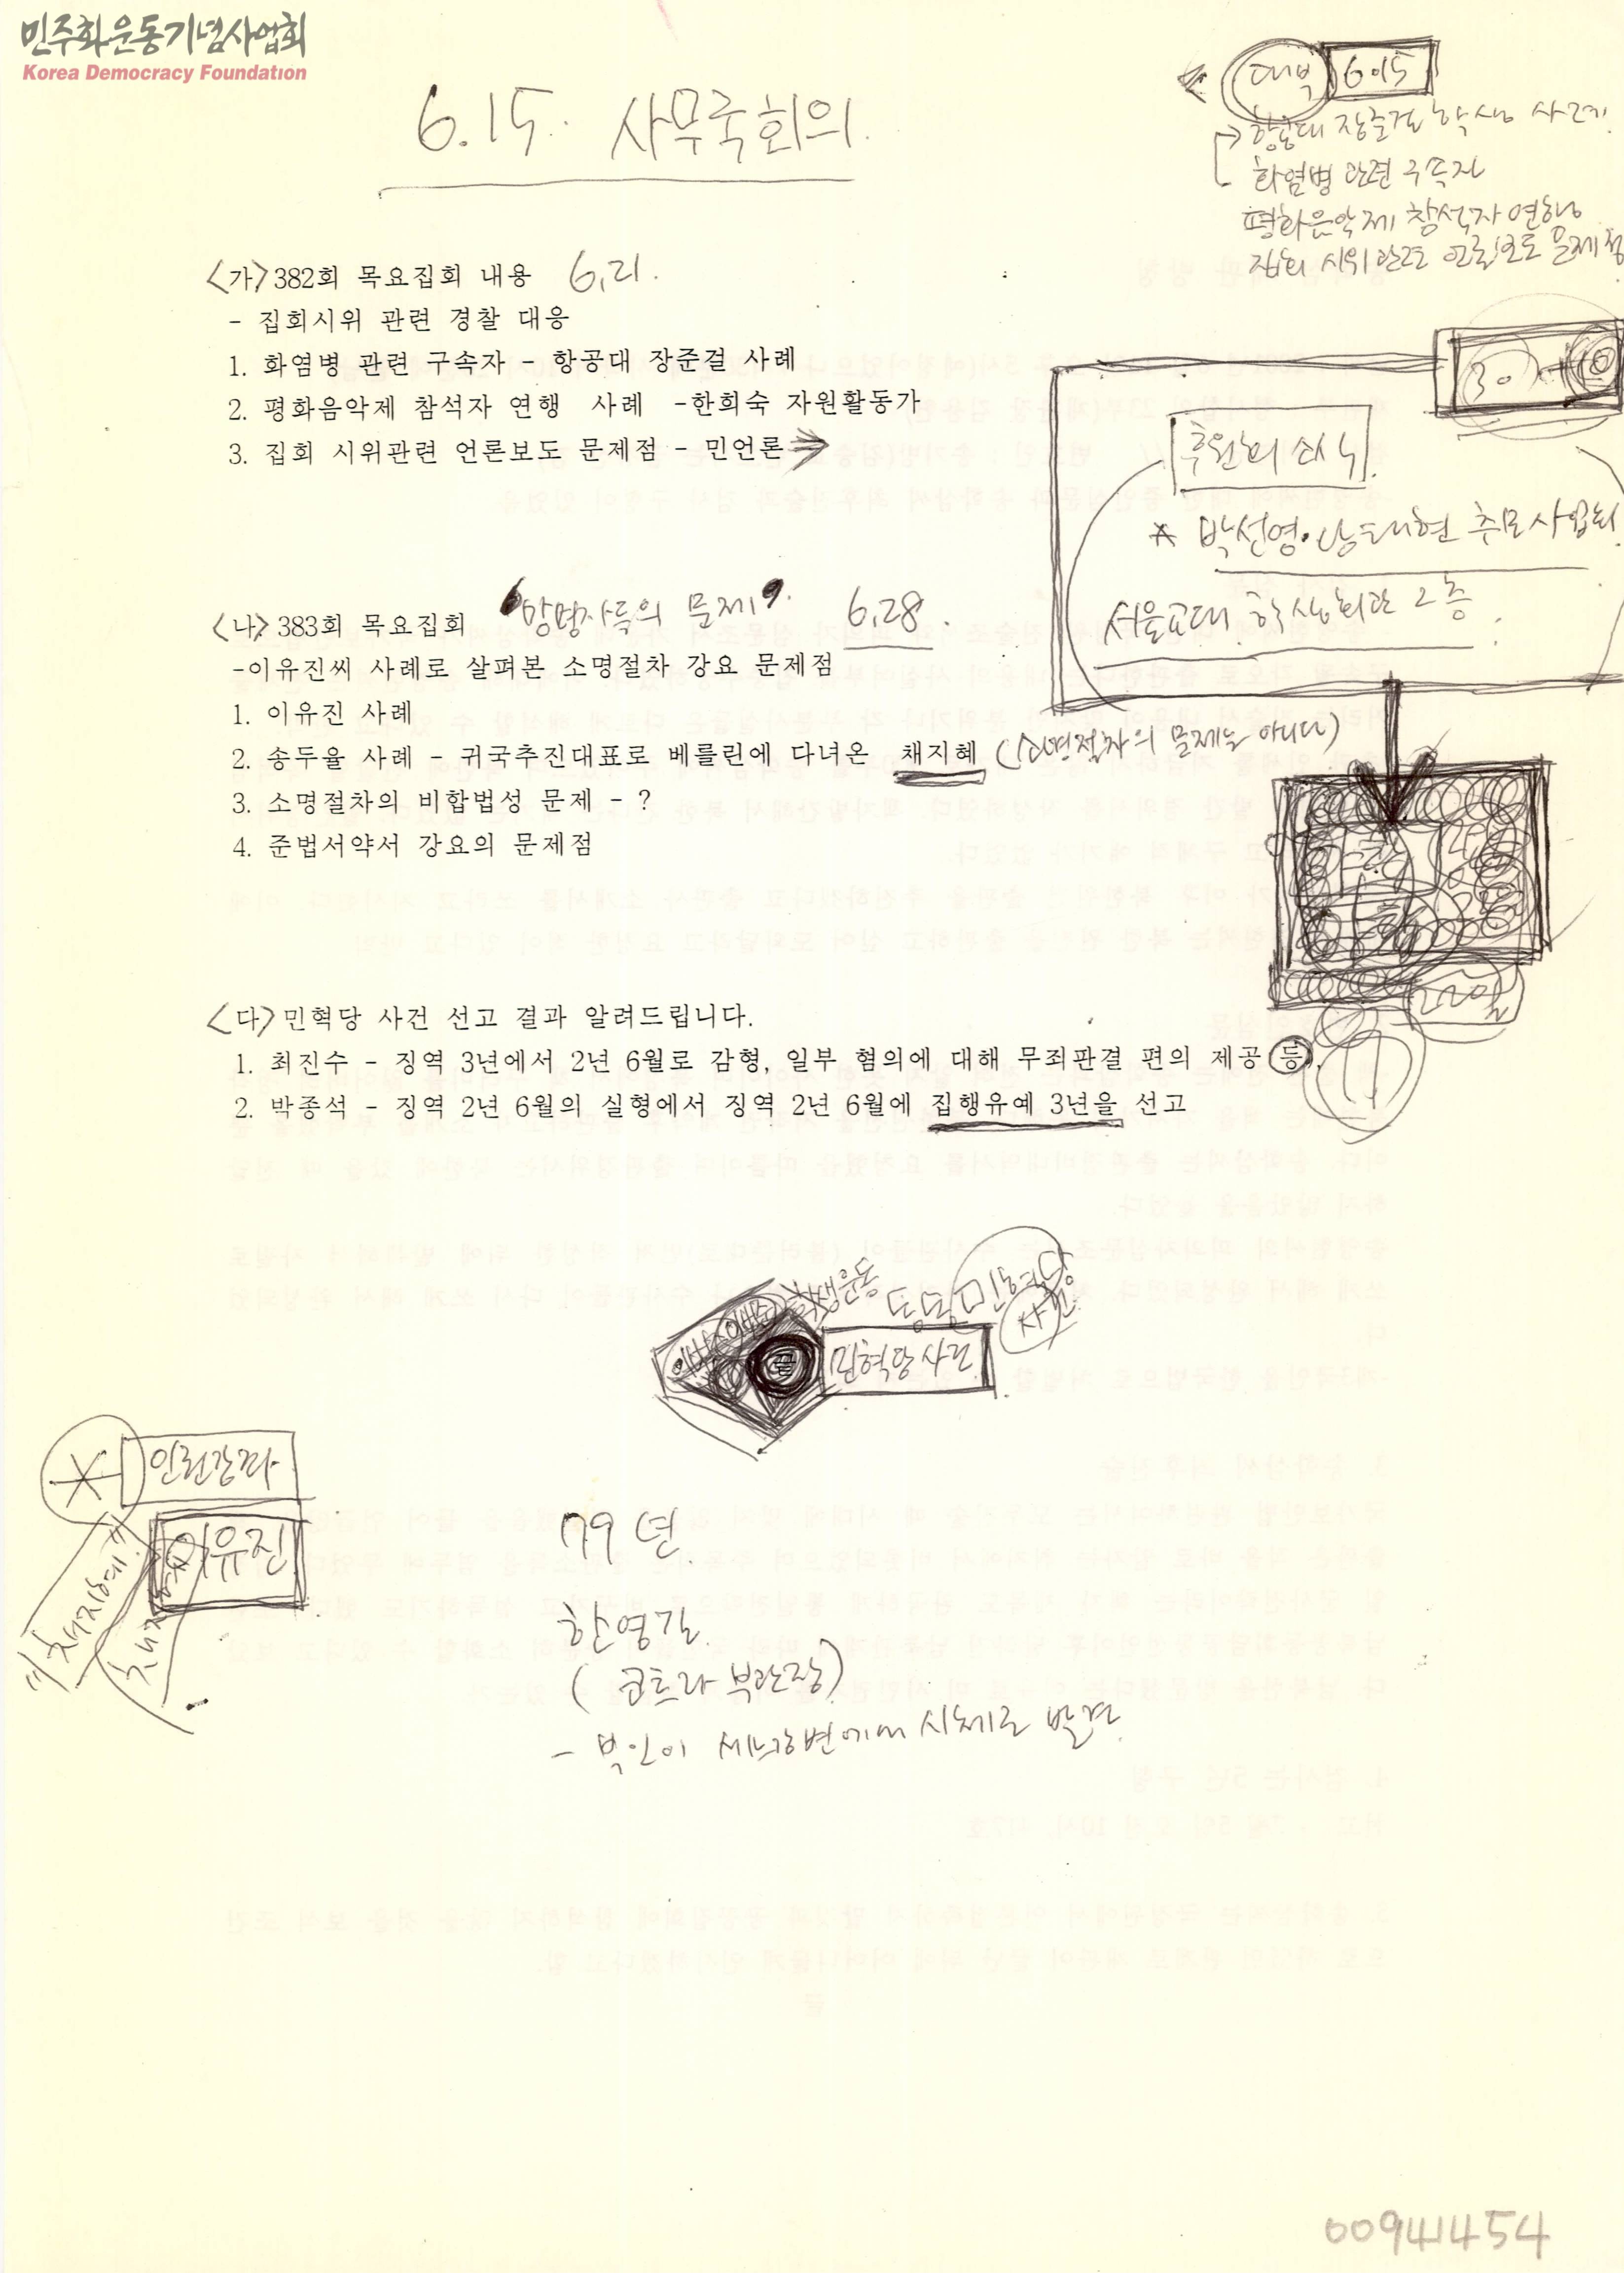 민주화운동기념사업회
Korea Democracy Foundation
6.15. 사무국회의.
대북 6.15
항공대 장준걸 학생 사례.
화염병 관련 구속자
평화음악제 참석자 연행
집회 시위 관련 언론보도 문제점
<가> 382회 목요집회 내용 6.21.
- 집회시위 관련 경찰 대응
1. 화염병 관련 구속자 - 항공대 장준걸 사례
2. 평화음악제 참석자 연행 사례 -한희숙 자원활동가
3. 집회 시위관련 언론보도 문제점 - 민언론
후원회
* 박선영· 추모사업회
서울교대 학생회관 2층.
<나> 383회 목요집회 망명자들의 문제 6.28.
-이유진씨 사례로 살펴본 소명절차 강요 문제점
1. 이유진 사례
2. 송두율 사례 - 귀국추진대표로 베를린에 다녀온 채지혜 (소명절차의 문제는 아니다)
3. 소명절차의 비합법성 문제 - ?
4. 준법서약서 강요의 문제점
22일
<다> 민혁당 사건 선고 결과 알려드립니다.
1. 최진수 - 징역 3년에서 2년 6월로 감형, 일부 혐의에 대해 무죄판결 편의 제공 등.
2. 박종석 - 징역 2년 6월의 실형에서 징역 2년 6월에 집행유예 3년을 선고
학생운동
민혁당
사건
끝
민혁당사건
* 인권강좌
이유진
"채지혜"
79년.
한영길.
(코트라 부관장)
- 부인이 세느강변에서 시체로 발견.
00941454